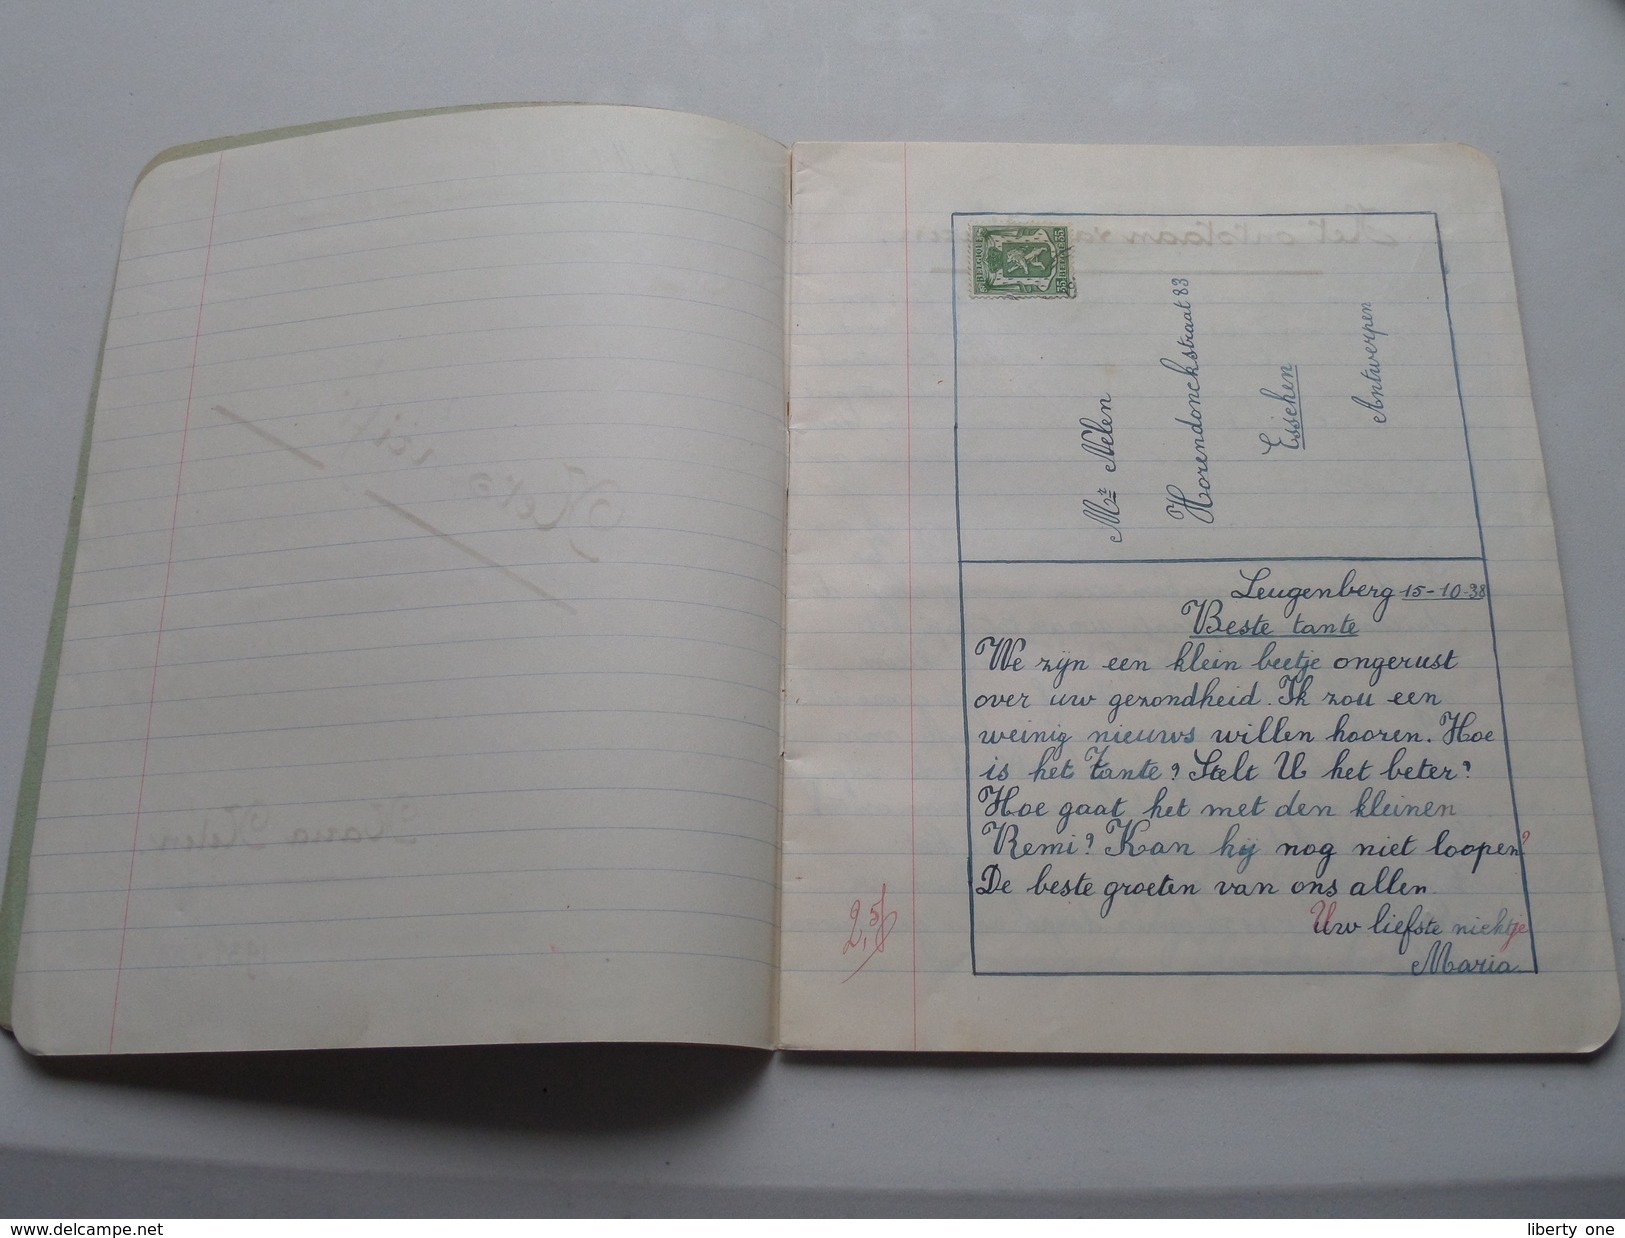 BELGIQUE
35
BELGIE
35
Mr Nelen
Horendonckstraat 83
Esschen
Antwerpen
Leugenberg 15-10-38
Beste tante
We zijn een klein beetje ongerust
over uw gezondheid. Ik zou een
weinig nieuws willen hooren. Hoe
is het tante? Stelt U het beter?
Hoe gaat het met den kleinen
Remi? Kan hij nog niet loopen?
De beste groeten van ons allen
Uw liefste nichtje
Maria
www.delcampe.net
liberty_one